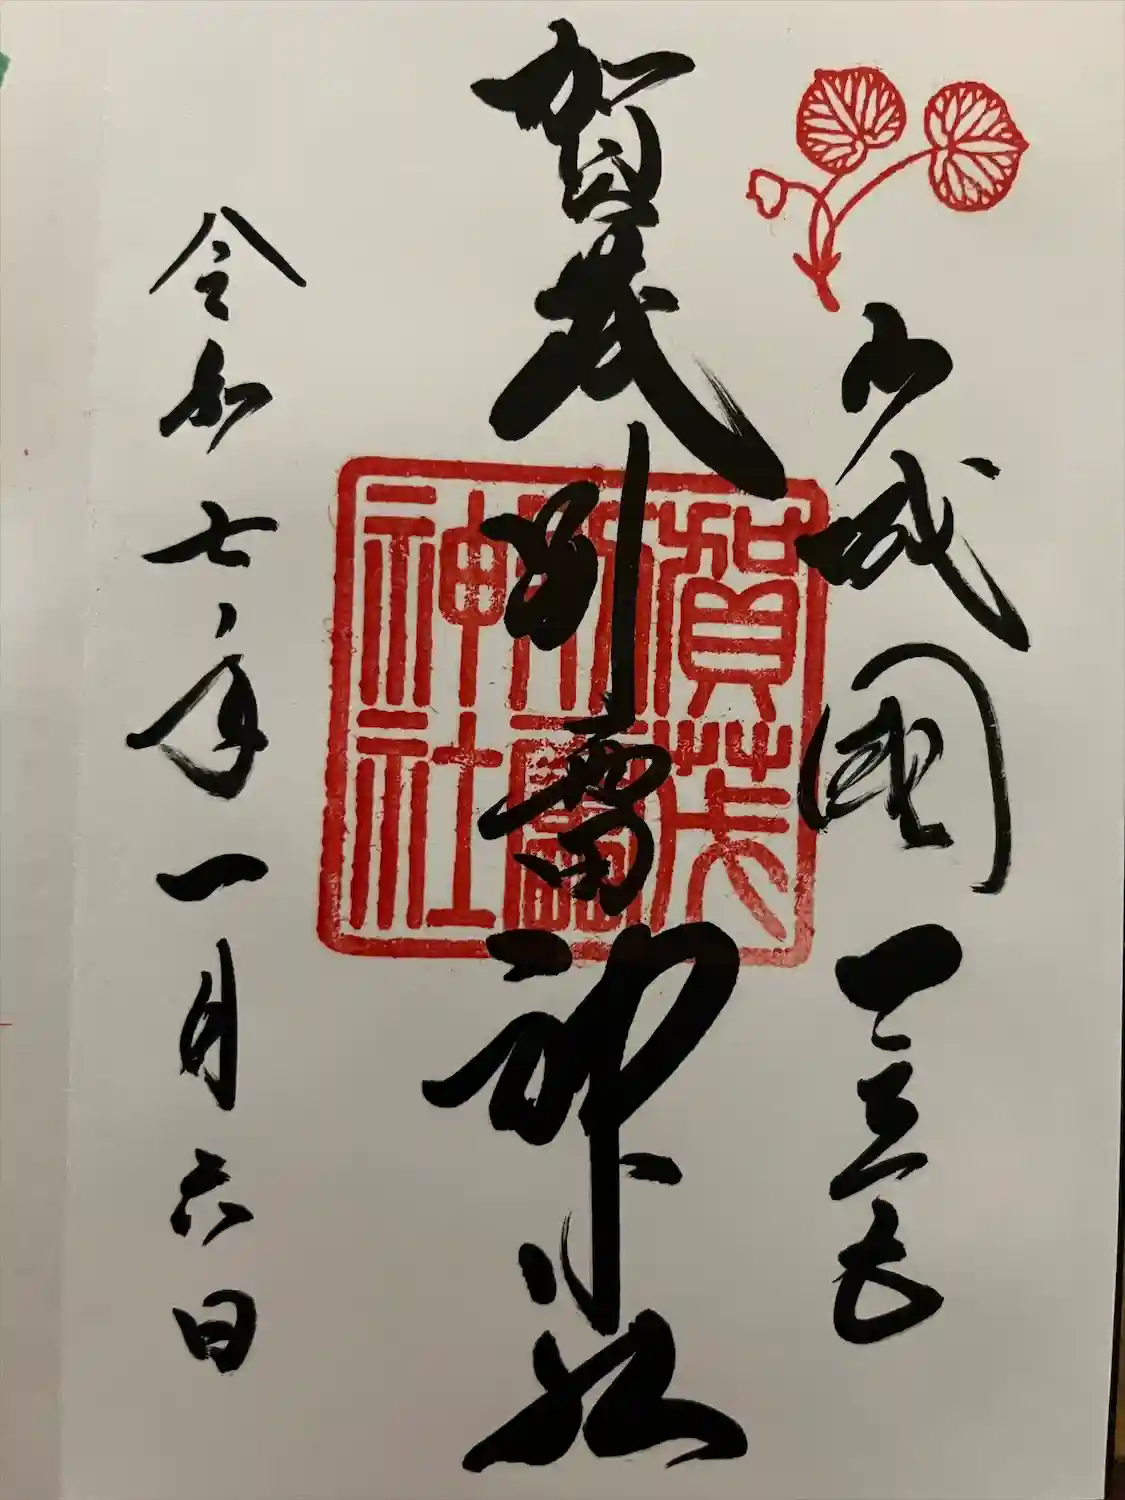 山城國一之宮
賀茂別雷神社
令和七年一月六日
賀茂
別雷
神社